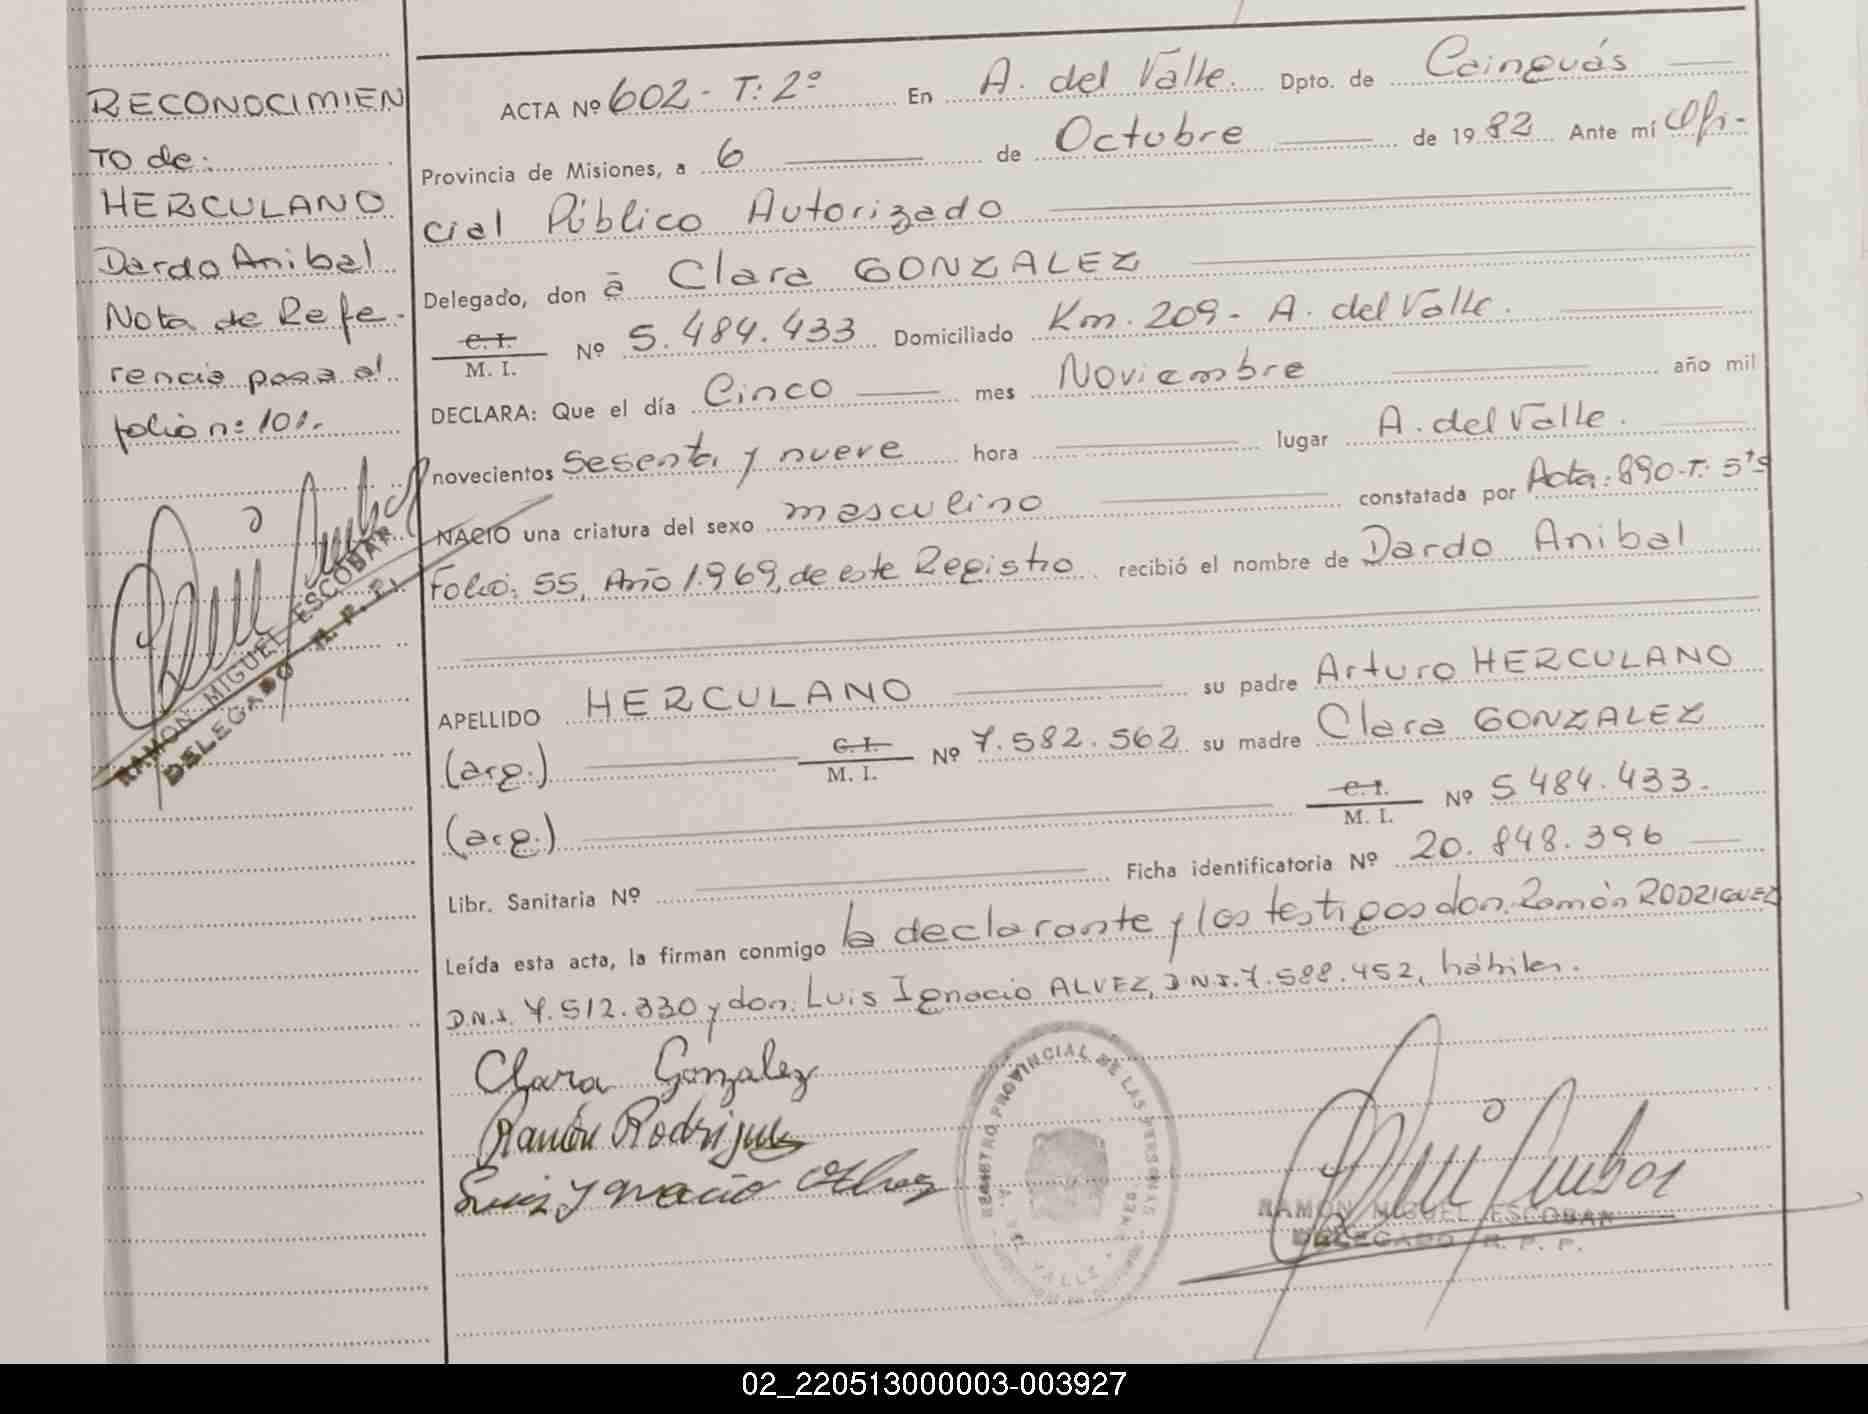 RECONOCIMIEN
TO de:
HERCULANO
Dardo Anibal
Nota de Refe-
rencia pasa al
folio nº 101.
RAMON MIGUEL ESCOBAR
DELEGADO R. P. P.
ACTA Nº 602- T: 2º En A. del Valle. Dpto. de Cainguás
Provincia de Misiones, a 6 de Octubre de 1982 Ante mí Ofi-
cial Público Autorizado
Delegado, don ā Clara GONZALEZ
C. I.
M. I. Nº 5.484.433 Domiciliado Km. 209- A. del Valle.
DECLARA: Que el día Cinco mes Noviembre año mil
novecientos sesenta y nueve hora lugar A. del Valle.
NACIÓ una criatura del sexo masculino constatada por Acta: 890-T: 5ts
Folio: 55, Año 1.969, de este Registro recibió el nombre de Dardo Anibal
APELLIDO HERCULANO su padre Arturo HERCULANO
(arg.) C. I.
M. I. Nº 7.582.562 su madre Clara GONZALEZ
(arg.) C. I.
M. I. Nº 5.484.433.
Libr. Sanitaria Nº Ficha identificatoria Nº 20.848.396
Leída esta acta, la firman conmigo la declarante y los testigos don. Ramón RODRIGUEZ
D.N.I. 7.512.330 y don: Luis Ignacio ALVEZ, D.N.I. 7.588.452, hábiles.
Clara Gonzalez
Ramón Rodriguez
Luis Ygnacio Alvez
REGISTRO PROVINCIAL DE LAS PERSONAS
A. DEL VALLE
RAMON MIGUEL ESCOBAR
DELEGADO R. P. P.
02_220513000003-003927